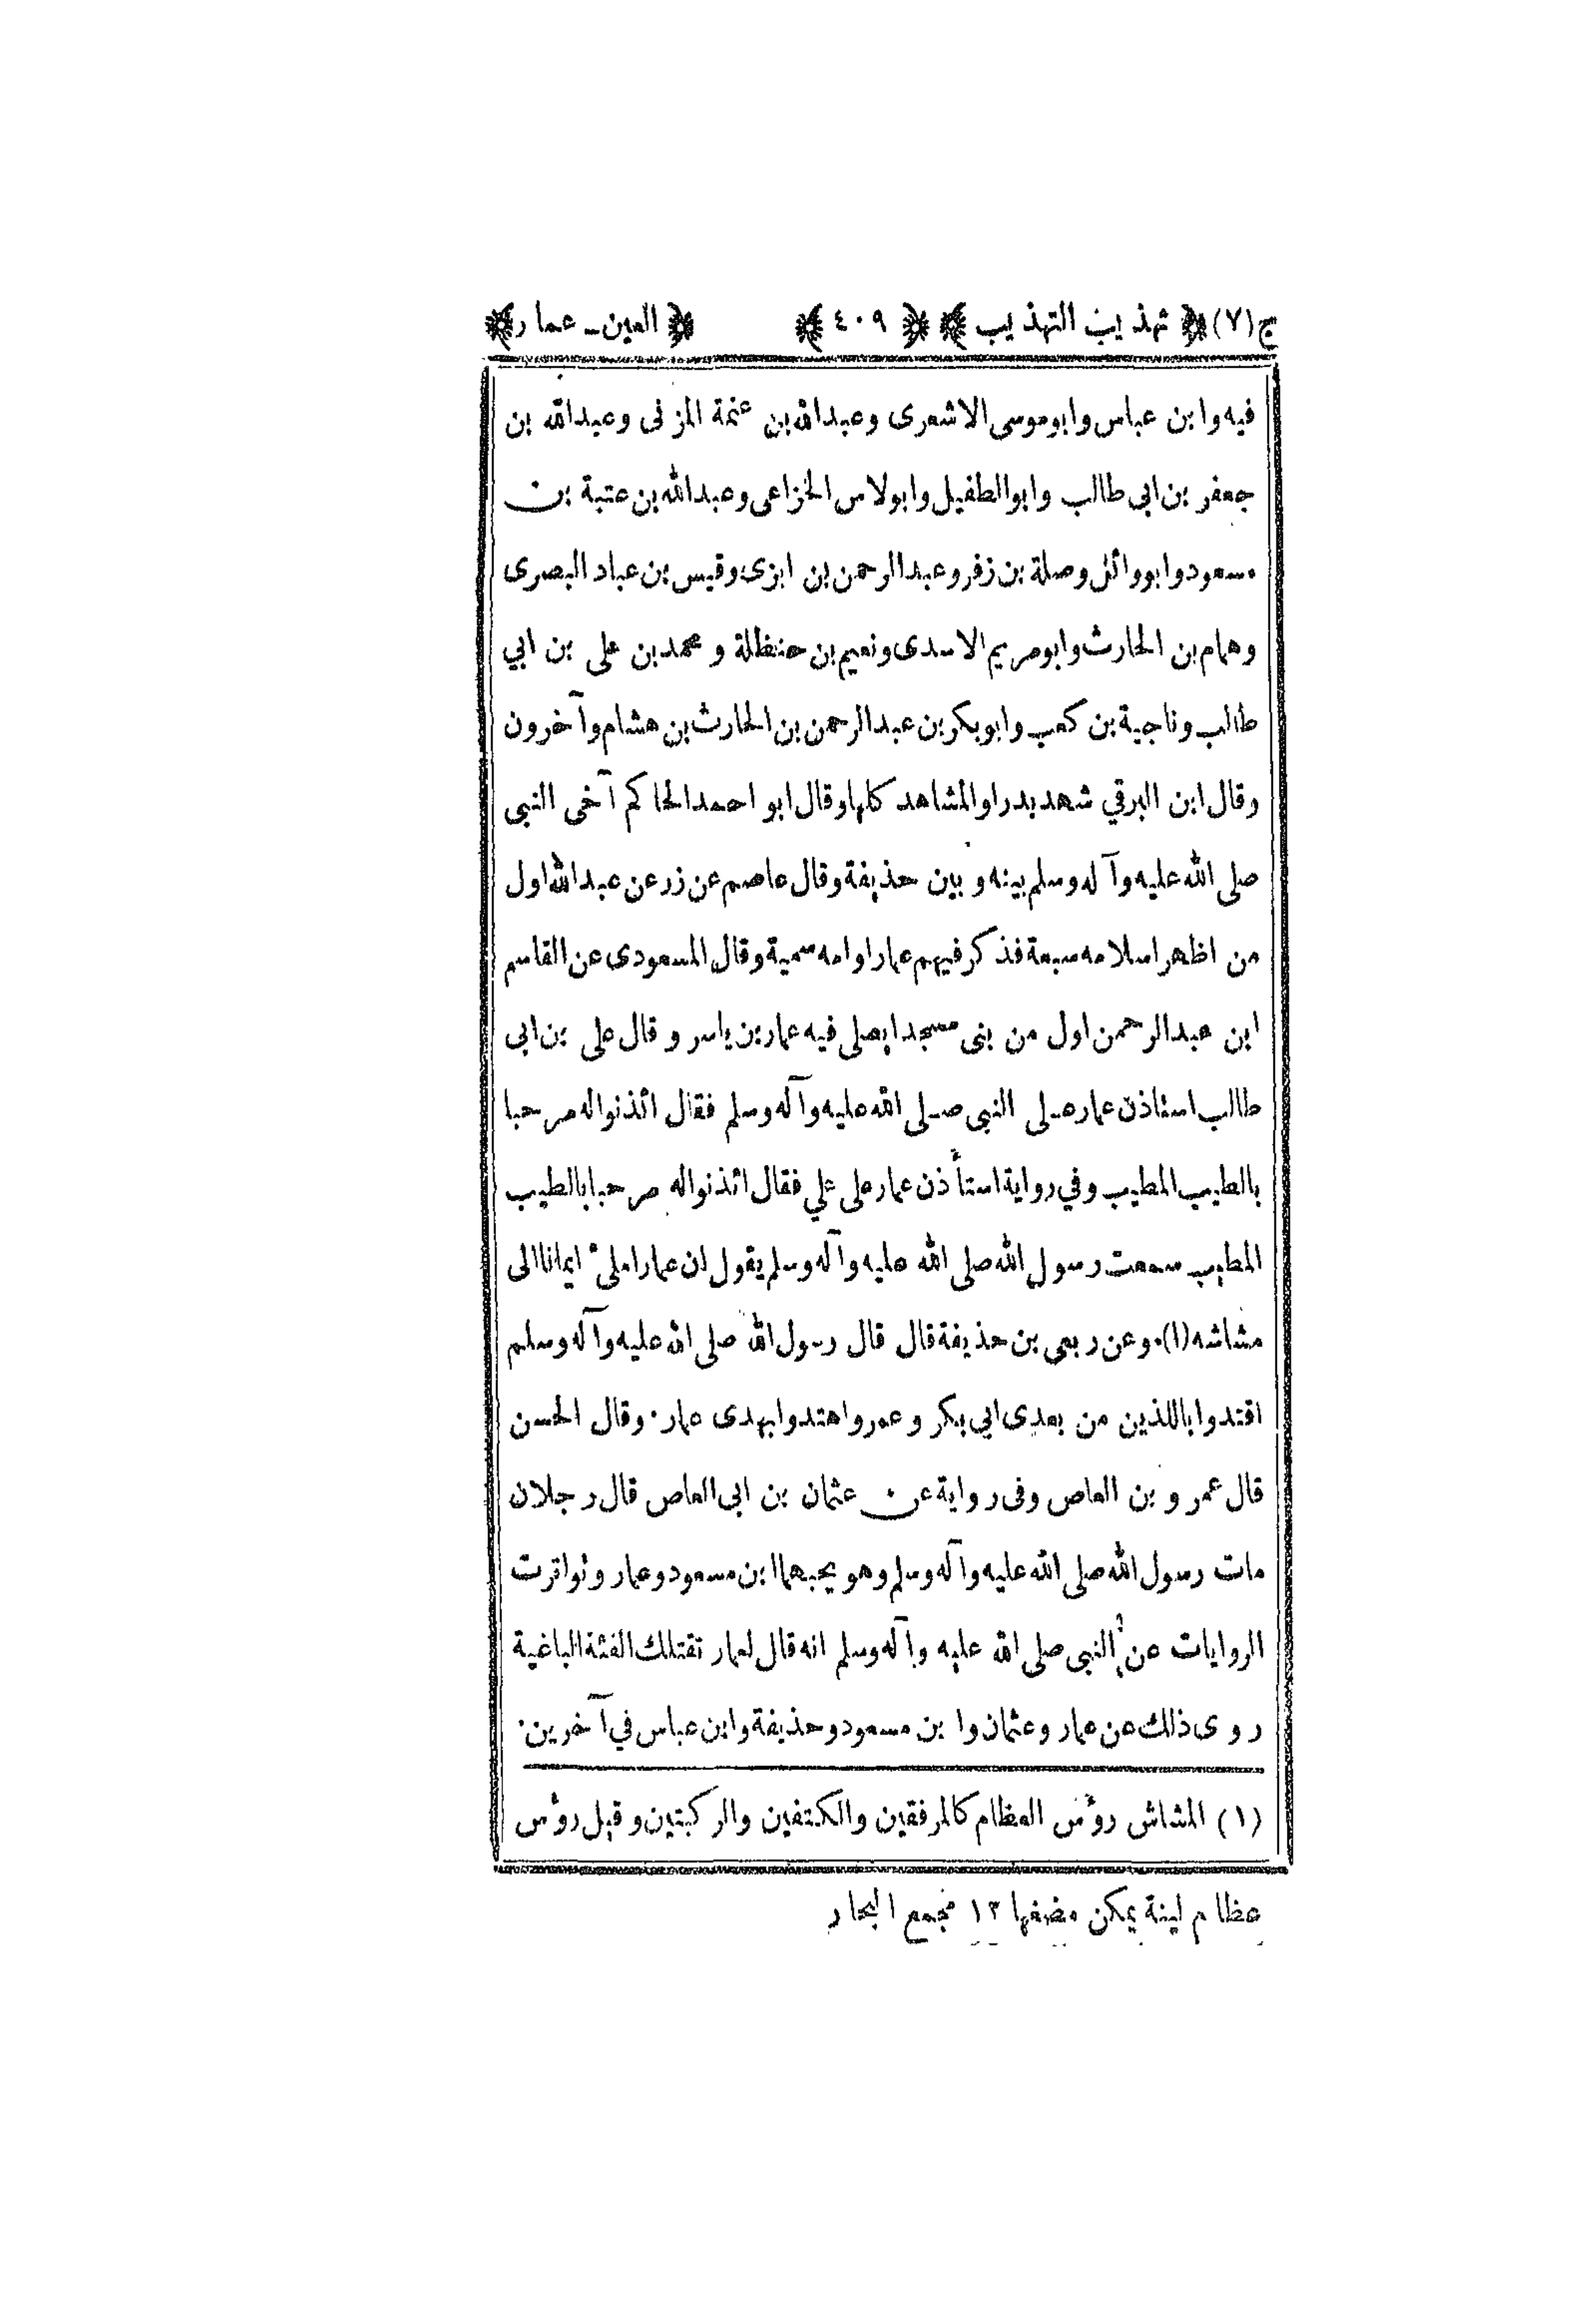 ج(٧) ﴿ تهذيب التهذيب ﴾ ﴿ ٤٠٩ ﴾ ﴿ العين ـ عمار ﴾
فيه وابن عباس وابو موسى الاشعرى وعبدالله بن عنمة المزنى وعبدالله بن
جعفر بن ابى طالب وابو الطفيل وابو لاس الخزاعى وعبدالله بن عتبة بن
مسعود وابو وائل وصلة بن زفر وعبدالرحمن بن ابزى وقيس بن عباد البصرى
وهمام بن الحارث وابو مريم الاسدى ونعيم بن حنظلة و محمد بن على بن ابي
طالب وناجية بن كعب وابو بكر بن عبدالرحمن بن الحارث بن هشام وآخرون
وقال ابن البرقي شهد بدرا والمشاهد كلها وقال ابو احمد الحاكم آخى النبى
صلى الله عليه وآله وسلم بينه و بين حذيفة وقال عاصم عن زر عن عبدالله اول
من اظهر اسلامه سبعة فذكر فيهم عمارا وامه سمية وقال المسعودى عن القاسم
ابن عبدالرحمن اول من بنى مسجدا يصلى فيه عمار بن ياسر و قال على بن ابى
طالب استاذن عمار على النبى صلى الله عليه وآله وسلم فقال ائذنوا له مرحبا
بالطيب المطيب وفي رواية استأذن عمار على علي فقال ائذنوا له مرحبا بالطيب
المطيب سمعت رسول الله صلى الله عليه وآله وسلم يقول ان عمارا ملىء ايمانا الى
مشاشه (١). وعن ربعى بن حذيفة قال قال رسول الله صلى الله عليه وآله وسلم
اقتدوا باللذين من بعدى ابي بكر و عمر واهتدوا بهدى عمار. وقال الحسن
قال عمرو بن العاص وفى رواية عن عثمان بن ابى العاص قال رجلان
مات رسول الله صلى الله عليه وآله وسلم وهو يحبهما ابن مسعود وعمار وتواترت
الروايات عن النبى صلى الله عليه وآله وسلم انه قال لعمار تقتلك الفئة الباغية
روى ذلك عن عمار وعثمان وابن مسعود وحذيفة وابن عباس في آخرين.
(١) المشاش رؤس العظام كالمرفقين والكتفين والركبتين و قيل رؤس
عظام لينة يمكن مضغها ١٢ مجمع البحار